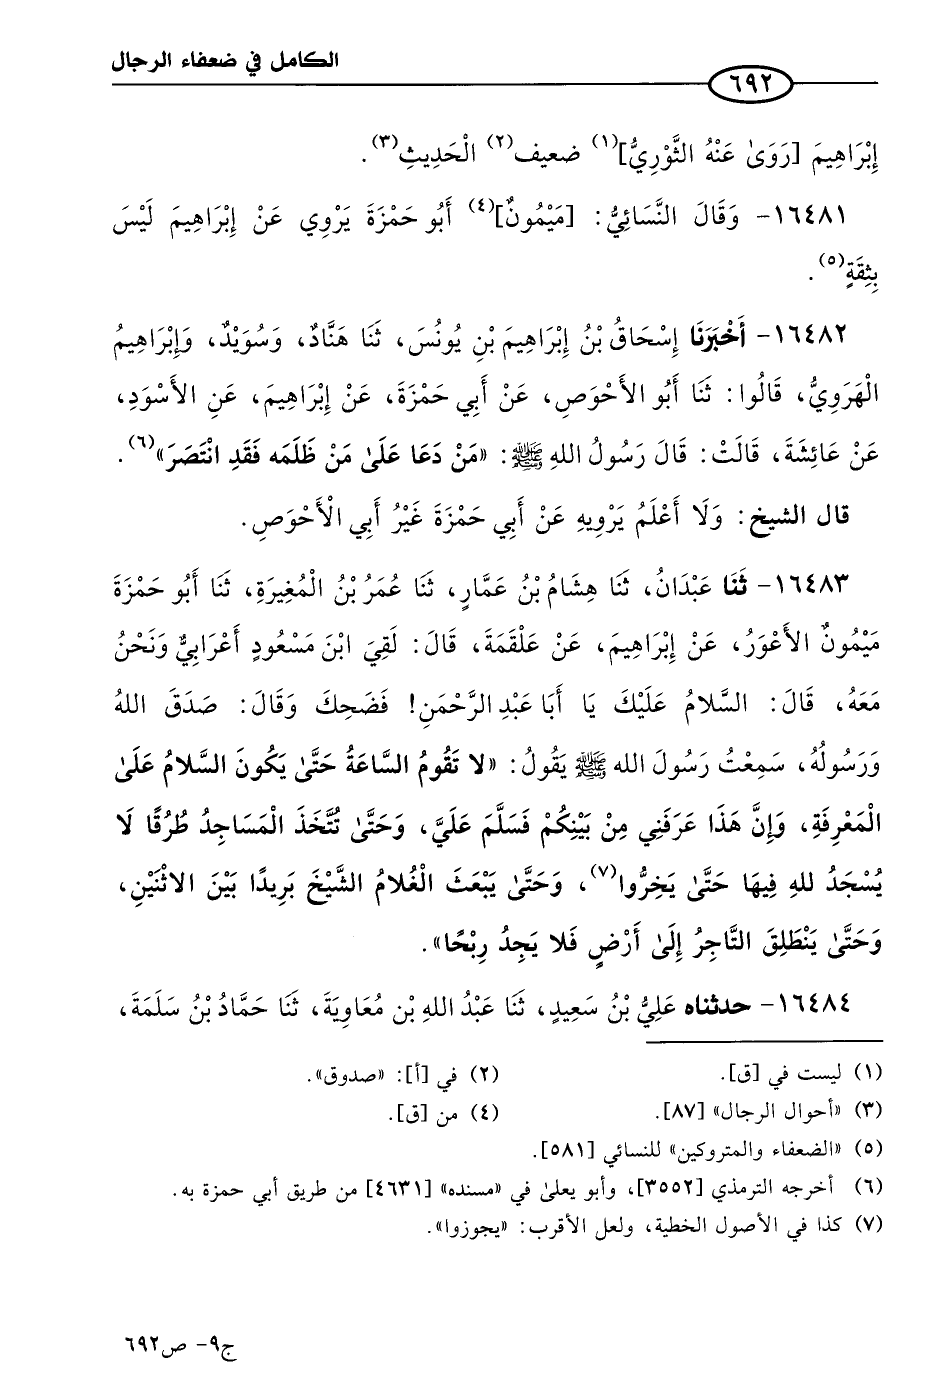 الكامل في ضعفاء الرجال
٦٩٢
إِبْرَاهِيمَ [رَوَىٰ عَنْهُ الثَّوْرِيُّ](١) ضعيف(٢) الْحَدِيثِ(٣).
١٦٤٨١- وَقَالَ النَّسَائِيُّ: [مَيْمُونٌ](٤) أَبُو حَمْزَةَ يَرْوِي عَنْ إِبْرَاهِيمَ لَيْسَ
بِثِقَةٍ(٥).
١٦٤٨٢- أَخْبَرَنَا إِسْحَاقُ بْنُ إِبْرَاهِيمَ بْنِ يُونُسَ، ثَنَا هَنَّادٌ، وَسُوَيْدٌ، وَإِبْرَاهِيمُ
الْهَرَوِيُّ، قَالُوا: ثَنَا أَبُو الأَحْوَصِ، عَنْ أَبِي حَمْزَةَ، عَنْ إِبْرَاهِيمَ، عَنِ الأَسْوَدِ،
عَنْ عَائِشَةَ، قَالَتْ: قَالَ رَسُولُ اللهِ ﷺ: «مَنْ دَعَا عَلَىٰ مَنْ ظَلَمَه فَقَدِ انْتَصَرَ»(٦).
قال الشيخ: وَلَا أَعْلَمُ يَرْوِيهِ عَنْ أَبِي حَمْزَةَ غَيْرُ أَبِي الْأَحْوَصِ.
١٦٤٨٣- ثَنَا عَبْدَانُ، ثَنَا هِشَامُ بْنُ عَمَّارٍ، ثَنَا عُمَرُ بْنُ الْمُغِيرَةِ، ثَنَا أَبُو حَمْزَةَ
مَيْمُونٌ الأَعْوَرُ، عَنْ إِبْرَاهِيمَ، عَنْ عَلْقَمَةَ، قَالَ: لَقِيَ ابْنَ مَسْعُودٍ أَعْرَابِيٌّ وَنَحْنُ
مَعَهُ، قَالَ: السَّلامُ عَلَيْكَ يَا أَبَا عَبْدِ الرَّحْمَنِ! فَضَحِكَ وَقَالَ: صَدَقَ اللهُ
وَرَسُولُهُ، سَمِعْتُ رَسُولَ الله ﷺ يَقُولُ: «لا تَقُومُ السَّاعَةُ حَتَّىٰ يَكُونَ السَّلامُ عَلَىٰ
الْمَعْرِفَةِ، وَإِنَّ هَذَا عَرَفَنِي مِنْ بَيْنِكُمْ فَسَلَّمَ عَلَيَّ، وَحَتَّىٰ تُتَّخَذَ الْمَسَاجِدُ طُرُقًا لَا
يُسْجَدُ للهِ فِيهَا حَتَّىٰ يَخِرُّوا(٧)، وَحَتَّىٰ يَبْعَثَ الْغُلامُ الشَّيْخَ بَرِيدًا بَيْنَ الاثْنَيْنِ،
وَحَتَّىٰ يَنْطَلِقَ التَّاجِرُ إِلَىٰ أَرْضٍ فَلا يَجِدُ رِبْحًا».
١٦٤٨٤- حدثناه عَلِيُّ بْنُ سَعِيدٍ، ثَنَا عَبْدُ اللهِ بْنِ مُعَاوِيَةَ، ثَنَا حَمَّادُ بْنُ سَلَمَةَ،
(١) ليست في [ق]. (٢) في [أ]: «صدوق».
(٣) «أحوال الرجال» [٨٧]. (٤) من [ق].
(٥) «الضعفاء والمتروكين» للنسائي [٥٨١].
(٦) أخرجه الترمذي [٣٥٥٢]، وأبو يعلىٰ في «مسنده» [٤٦٣١] من طريق أبي حمزة به.
(٧) كذا في الأصول الخطية، ولعل الأقرب: «يجوزوا».
ج٩- ص٦٩٢